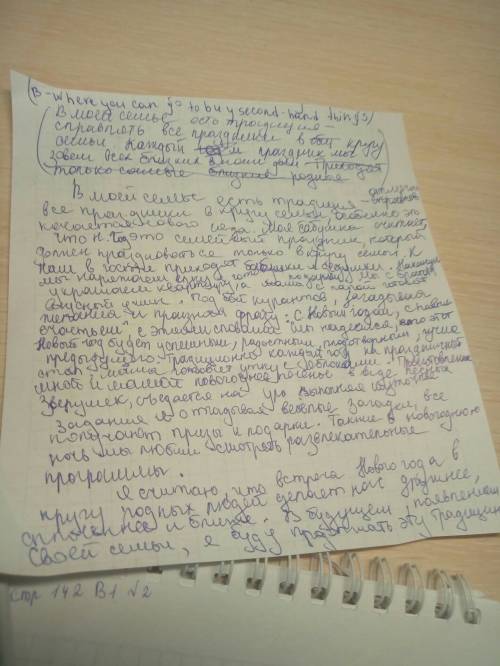 (B - Where you can go to buy second-hand things)
В моей семье есть традиция -
справлять все праздники в кругу
семьи. Каждый праздник мы
зовем всех близких в наш дом. Приходят
только самые близкие родные
В моей семье есть традиция - отмечать
все праздники в кругу семьи. Особенно это
касается нового года. Моя бабушка считает,
что Н. Год это семейный праздник, который
должен праздноваться только в кругу семьи. К
нам в гости приходят бабушки и дедушки. Накануне
мы наряжаем ёлку,
украшаем квартиру, а мама с папой готовят
вкусной ужин. Под бой курантов, загадывая
желания и произнося фразу: "С Новым годом, с новым
счастьем", с этими словами мы надеемся, что этот
Новый год будет успешным, радостным, плодотворным, лучше
предыдущего. Традиционно каждый год на праздничный
стол готовит утку с яблоками. Приготовленное
мной и мамой новогоднее печенье в виде лесных
зверушек, съедается на ура. Выполняя шуточные
задания и отгадывая весёлые загадки, все
получают призы и подарки. Также в новогоднюю
ночь мы любим смотреть развлекательные
программы.
Я считаю, что встреча Нового года в
кругу родных людей делает нас дружнее,
сплочённее и ближе. В будущем,
своей семьи, я буду продолжать эту традицию
стр 142 В1 √2